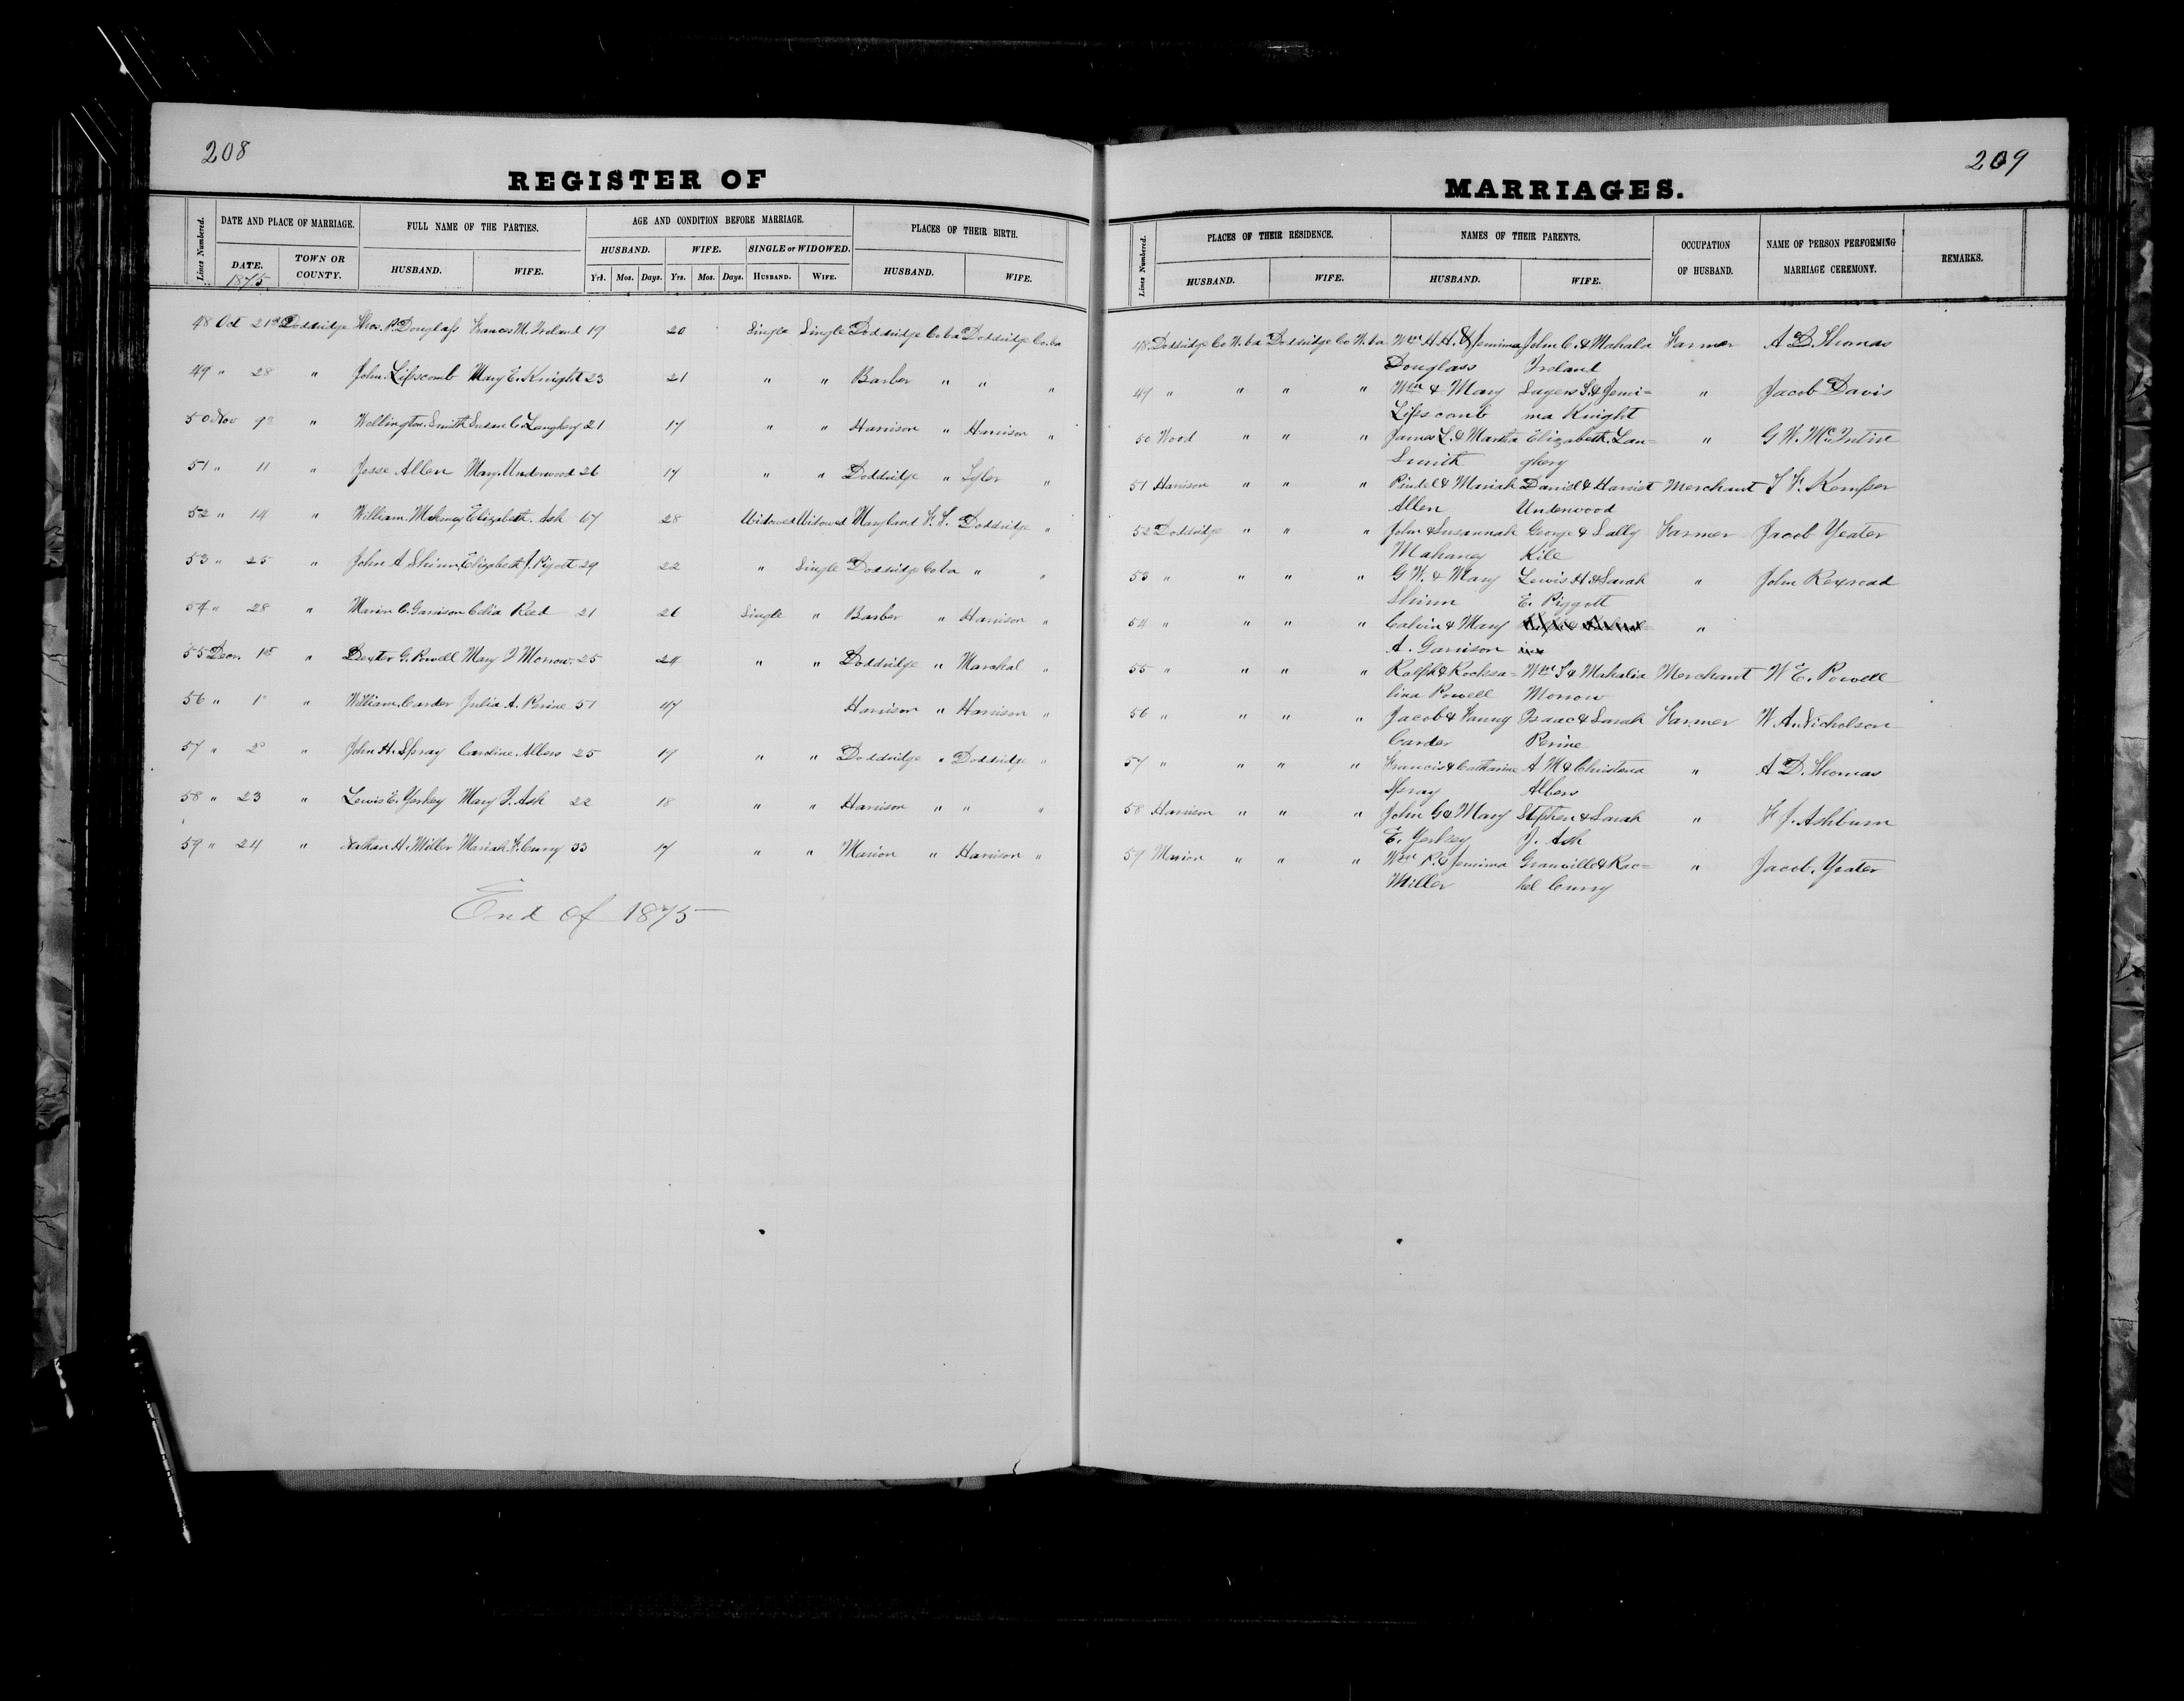 208
REGISTER OF
Lines Numbered. DATE AND PLACE OF MARRIAGE. FULL NAME OF THE PARTIES. AGE AND CONDITION BEFORE MARRIAGE. PLACES OF THEIR BIRTH.
HUSBAND. WIFE. SINGLE or WIDOWED.
DATE. TOWN OR COUNTY. HUSBAND. WIFE. Yrs. Mos. Days. Yrs. Mos. Days. HUSBAND. WIFE. HUSBAND. WIFE.
1875
48 Oct 21st Doddridge Thos. P. Douglass Frances M. Ireland 19 20 Single Single Doddridge Co. Va Doddridge Co. Va
49 " 28 " John Lipscomb Mary E. Knight 23 21 " " Barber " " "
50 Nov 9" " Wellington Smith Susan C. Laughery 21 17 " " Harrison " Harrison "
51 " 11 " Jesse Allen Mary Underwood 26 17 " " Doddridge " Tyler "
52 " 14 " William Mahaney Elizabeth Ash 67 28 Widowed Widowed Maryland Doddridge "
53 " 25 " John A Shinn Elizabeth J. Pigott 29 22 " Single Doddridge Co Va " "
54 " 28 " Marion C. Garrison Celia Reed 21 26 Single " Barber " Harrison "
55 Decr. 1st " Dexter G. Powell Mary I Morrow 25 24 " " Doddridge " Marshal "
56 " 1" " William Carder Julia A. Perine 51 47 Harrison " Harrison "
57 " 2" " John H. Spray Caroline Albers 25 17 " " Doddridge " Doddridge "
58 " 23 " Lewis E. Yerkey Mary J. Ash 22 18 " " Harrison " " "
59 " 24 " Nathan H. Miller Mariah F. Curry 33 17 " " Marion " Harrison "
End of 1875
209
MARRIAGES.
Lines Numbered. PLACES OF THEIR RESIDENCE. NAMES OF THEIR PARENTS. OCCUPATION OF HUSBAND. NAME OF PERSON PERFORMING MARRIAGE CEREMONY. REMARKS.
HUSBAND. WIFE. HUSBAND. WIFE.
48 Doddridge Co W. Va Doddridge Co W. Va Wm H. H. & Jemima John C. & Mahala Farmer A D. Thomas
Douglass Ireland
49 " " " " Wm & Mary Sayers S. & Jemi= " Jacob Davis
Lipscomb ma Knight
50 Wood " " " James L. & Martha Elizabeth Lau= " G W. McIntire
Smith ghery
51 Harrison " " " Pindel & Mariah Daniel & Harriet Merchant S F. Kemper
Allen Underwood
52 Doddridge " " " John & Susannah George & Sally Farmer Jacob Yeater
Mahaney Kile
53 " " " " G W. & Mary Lewis H. & Sarah " John Rexroad
Shinn E. Piggott
54 " " " " Calvin & Mary "
A. Garrison
55 " " " " Ralph & Rocksa= Wm S & Mahalia Merchant W E. Powell
lina Powell Morrow
56 " " " " Jacob & Fanny Isaac & Sarah Farmer W. A. Nicholson
Carder Perine
57 " " " " Francis & Catharine A M & Christena " A D. Thomas
Spray Albers
58 Harrison " " " John G & Mary Stephen & Sarah " F J. Ashburn
E. Yerkey J. Ash
59 Marion " " " Wm P. & Jemima Granville & Rac= " Jacob Yeater
Miller hel Curry